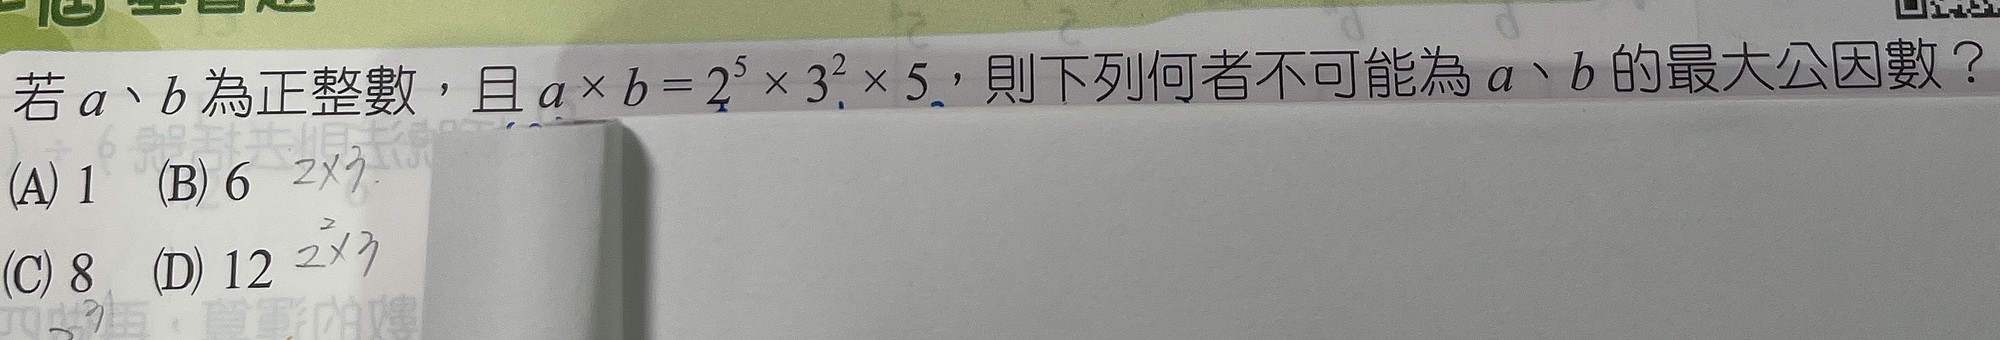 若 a、b 為正整數，且 a × b = 2⁵ × 3² × 5，則下列何者不可能為 a、b 的最大公因數？
(A) 1 (B) 6 2×3
(C) 8 (D) 12 2²×3